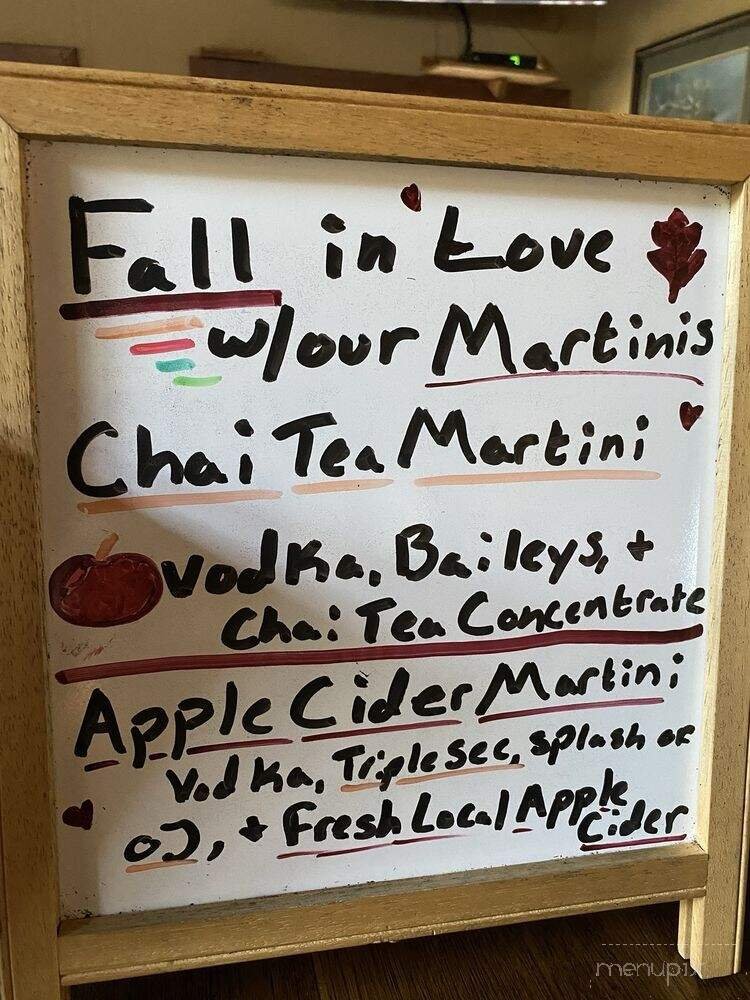 Fall in Love
w/our Martinis
Chai Tea Martini
Vodka, Baileys, +
Chai Tea Concentrate
Apple Cider Martini
Vodka, Triple Sec, splash of
OJ, + Fresh Local Apple
Cider
menupix